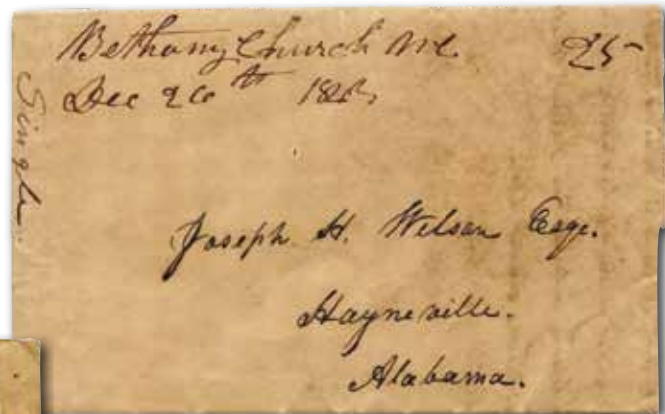 Bethany Church NC 25
Dec 26th
Single
Joseph H. Wilson Esqr.
Hayneville.
Alabama.